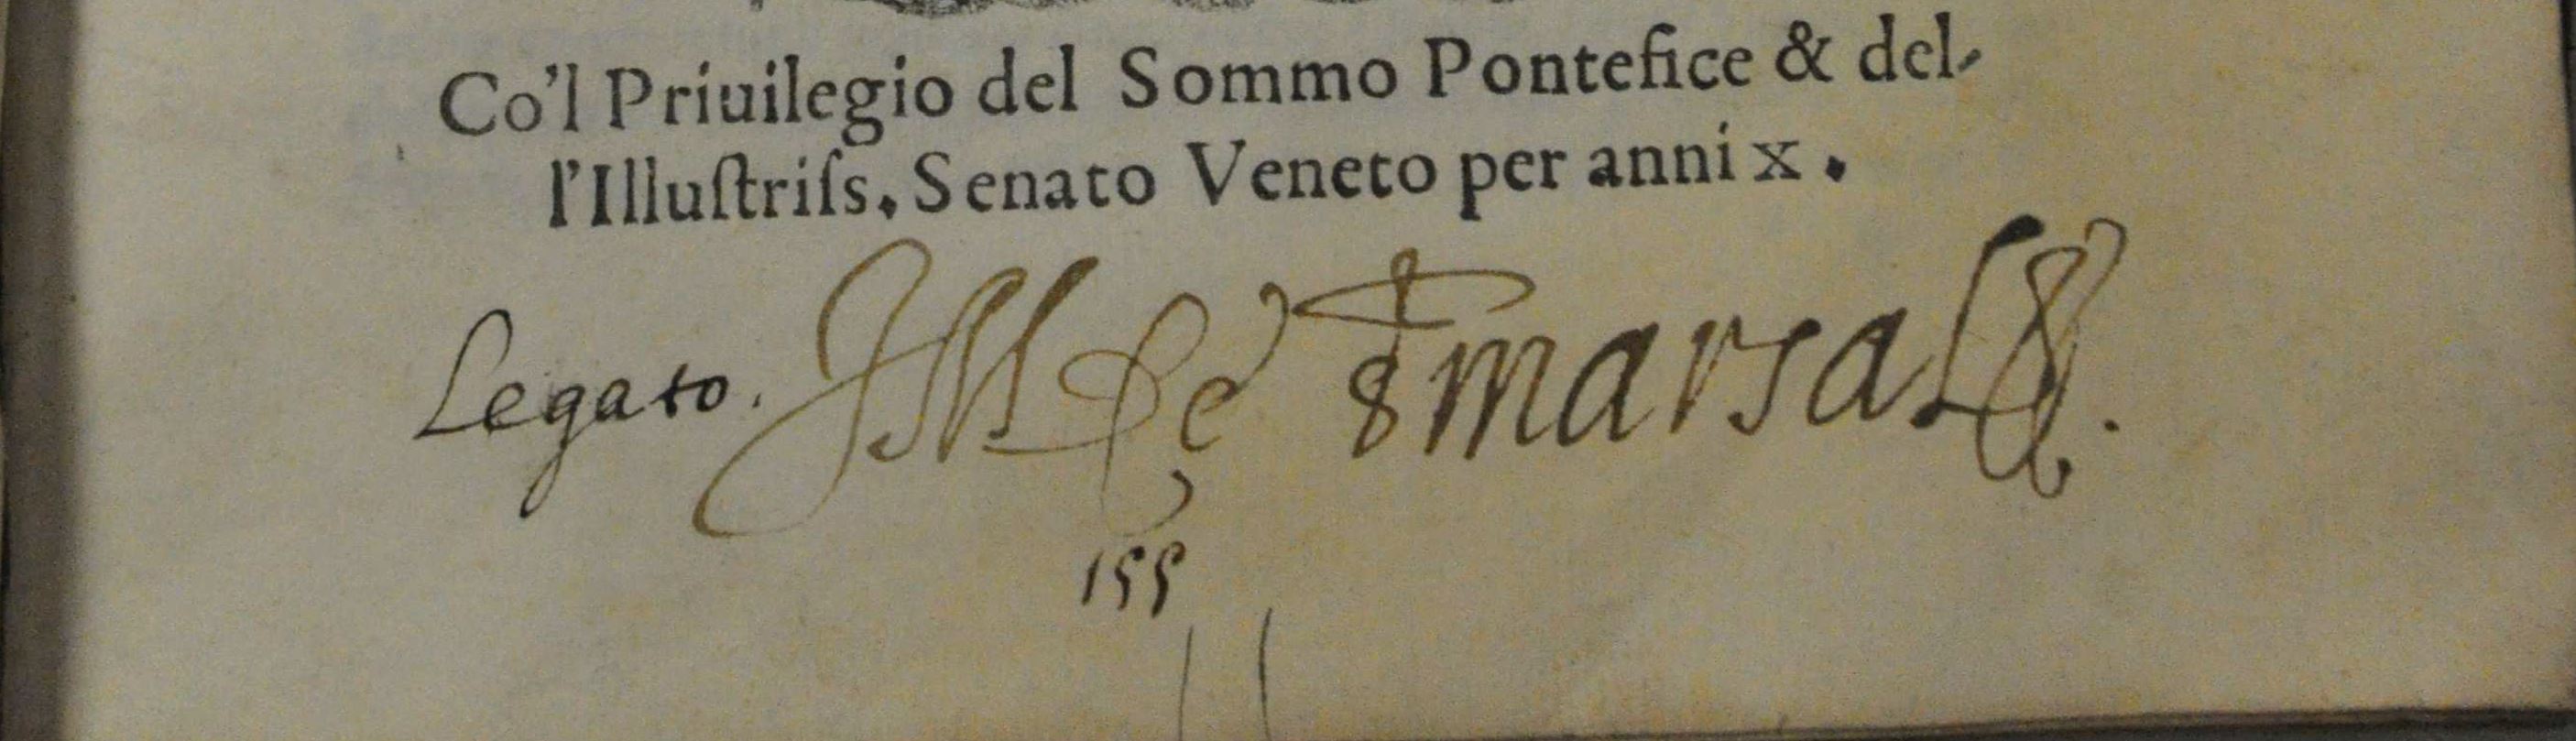 Co'l Priuilegio del Sommo Pontefice & del-
l'Illuſtriſs. Senato Veneto per anni x.
Legato. marsal
155